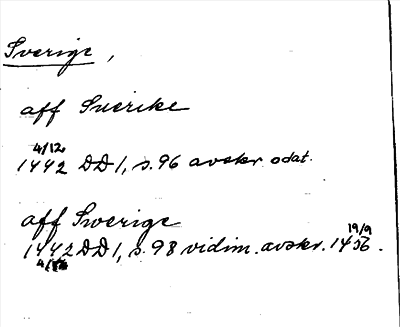 Sverige,
aff Suerike
4/12
1442 DD 1, s. 96 avskr. odat.
aff Swerige
19/9
1442 DD 1, s. 98 vidim. avskr. 1456.
4/12